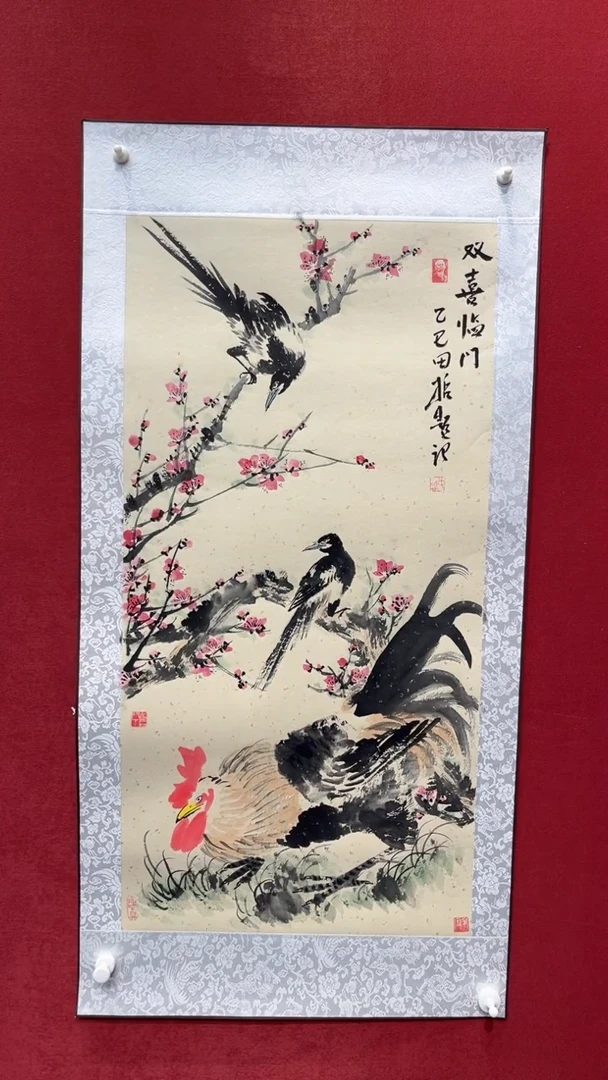 双喜临门
乙巳田哲题记